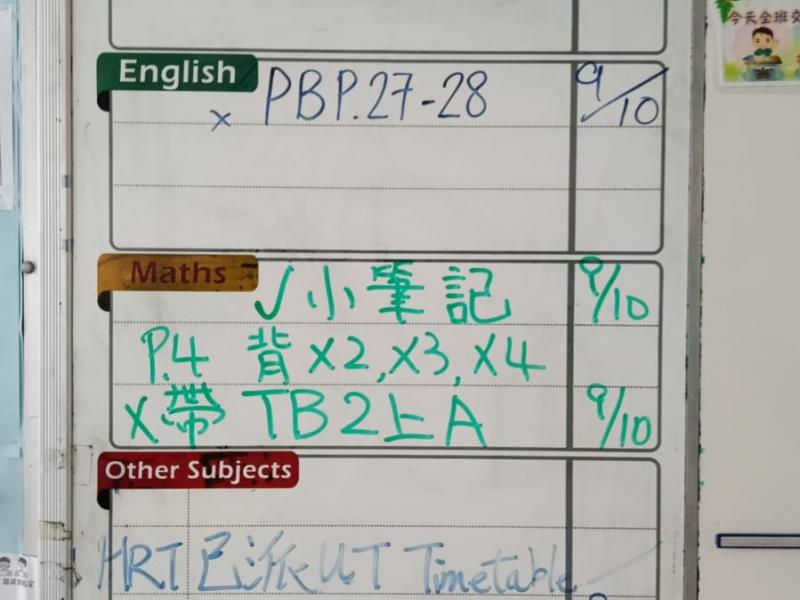 今天全班交
English
x PBP.27-28 9/10
Maths
✓小筆記 9/10
P.4 背 x2, x3, x4
x帶 TB2上A 9/10
Other Subjects
HRT已派UT Timetable